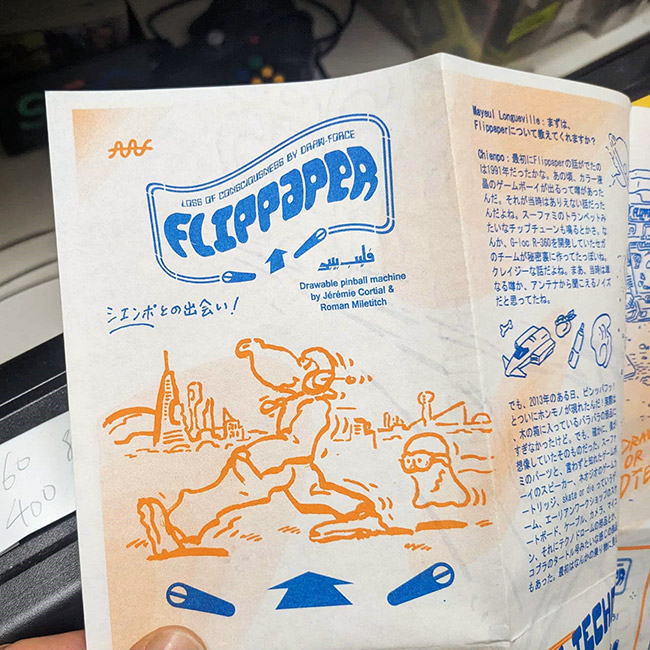 LOSS OF CONSCIOUSNESS BY DRAW-FORCE
FLIPPAPER
فليب بيبر
Drawable pinball machine
by Jérémie Cortial &
Roman Miletitch
シエンポとの出会い!
Mayeul Longueville : まずは、
Flippaperについて教えてくれますか?
Chienpo : 最初にFlippaperの話がでたの
は1991年だったかな。あの頃、カラー液
晶のゲームボーイが出るって噂があった
んだ。それが当時はありえない話だった
んだよね。スーファミのトランペットみ
たいなチップチューンも鳴るとかさ。な
んか、G-loc R-360を開発していたセガ
のチームが秘密裏に作ってたっぽいね。
クレイジーな話だよね。まあ、当時は単
なる噂か、アンテナから聞こえるノイズ
だと思ってたね。
でも、2013年のある日、ピンッパフッ!
とついにホンモノが現れたんだ!実際は
、木の箱に入っているバラバラの部品に
すぎなかったけど。でも、確かに、僕が
想像していたそのものだった。スーファ
ミのパーツと、言わずと知れたゲームボ
ーイのスピーカー、ネオジオのゲームカ
ートリッジ、skate or die っていうゲ
ーム、エーリアンワークショップのスケ
ートボード、ケーブル、カメラ、マイコ
ン、それにテクノドロームの部品とか、
コブラのタートル号みたいな
もあった。最初はなんかの乗り物に
DRAW
OR
60
400